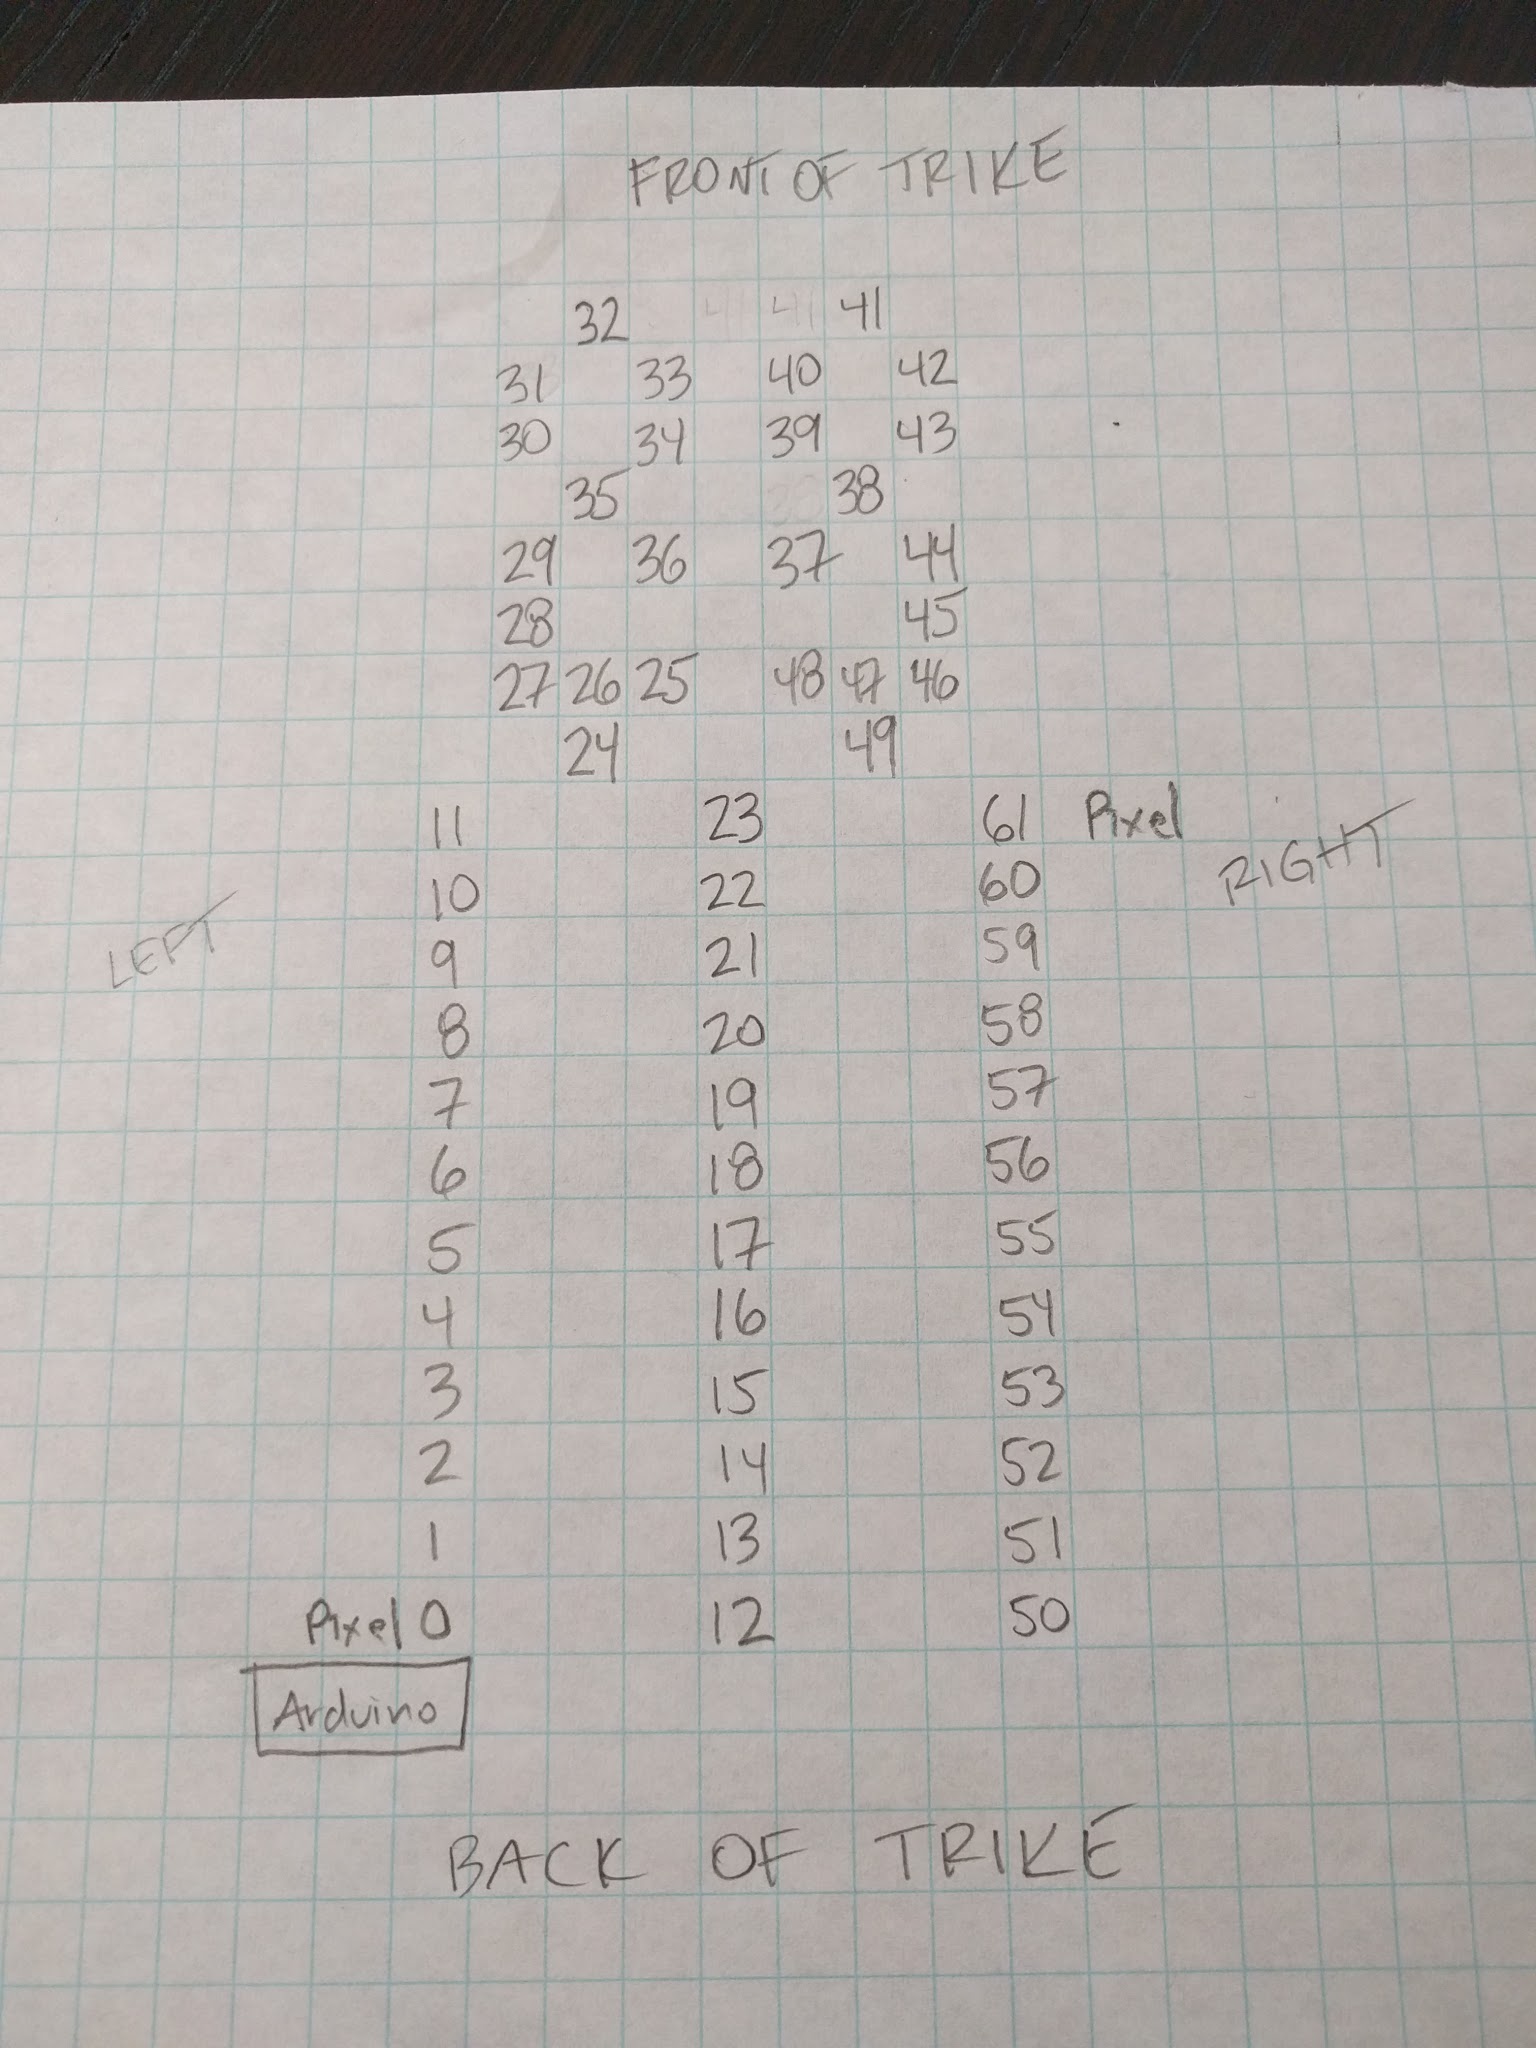 FRONT OF TRIKE
32 41 41 41
31 33 40 42
30 34 39 43
35 38
29 36 37 44
28 45
27 26 25 48 47 46
24 49
11 23 61 Pixel
10 22 60 RIGHT
9 21 59
LEFT
8 20 58
7 19 57
6 18 56
5 17 55
4 16 54
3 15 53
2 14 52
1 13 51
Pixel 0 12 50
Arduino
BACK OF TRIKE